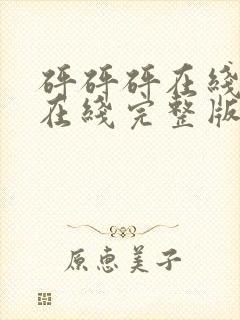 砰砰砰在线
在线完整版
原惠美子